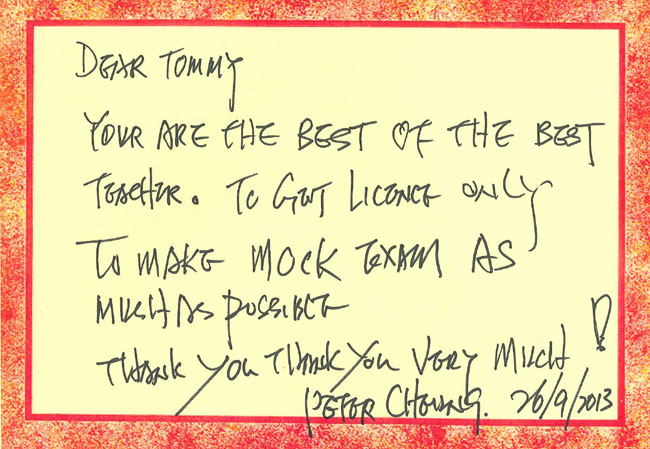 DEAR TOMMY
YOUR ARE THE BEST OF THE BEST
TEACHER. TO GET LICENCE ONLY
TO MAKE MOCK EXAM AS
MUCH AS POSSIBLE
THANK YOU THANK YOU VERY MUCH!
PETER CHEUNG. 26/9/2013